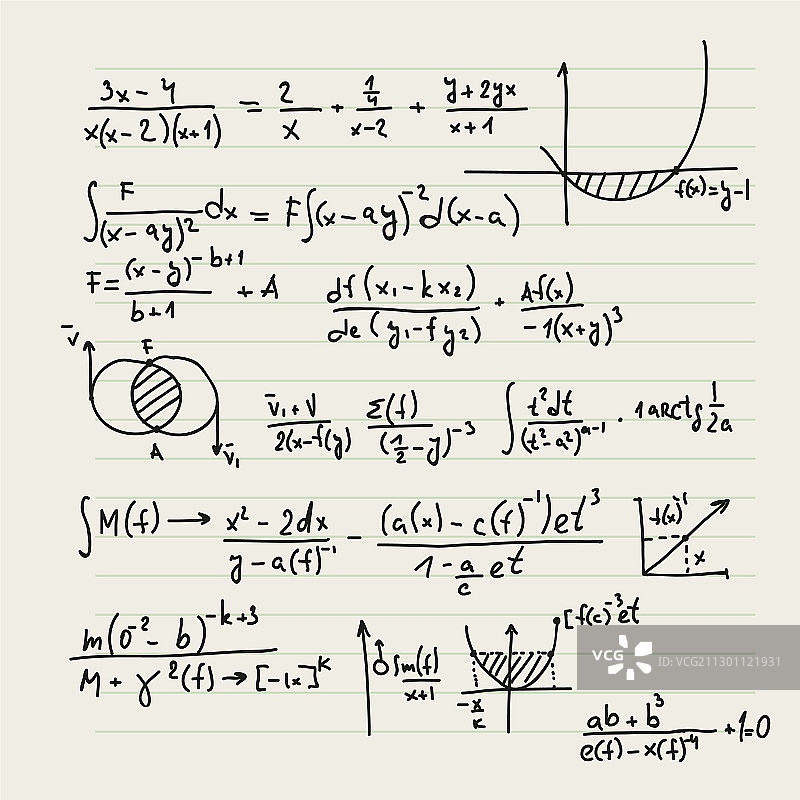 (3x - 4)/(x(x-2)(x+1)) = 2/x + (1/4)/(x-2) + (y+2yx)/(x+1)
f(x)=y-1
∫ F/(x-ay)² dx = F∫(x-ay)⁻² d(x-a)
F = (x-y)^(-b+1)/(b+1) + A
df(x₁-kx₂)/de(y₁-fy₂) · Af(x)/(-1(x+y)³)
v̄ F A v̄₁
(v̄₁+V)/(2(x-f(y)) Σ(f)/(½-y)⁻³ ∫ t²dt/(t²-a²)^(a-1) · 1arctg 1/2a
∫M(f) → (x²-2dx)/(y-a(f)⁻¹) - ((a(x)-c(f)⁻¹)et³)/(1-(a/c)et)
f(x)⁻¹ x
m(0⁻²-b)^(-k+3)/(M+γ²(f)→[-1x]^K
(f)/(x+1)
-x/k
[f(c)⁻³et
(ab+b³)/(e(f)-x(f)⁻⁴) +1=0
VCG
ID:VCG211301121931